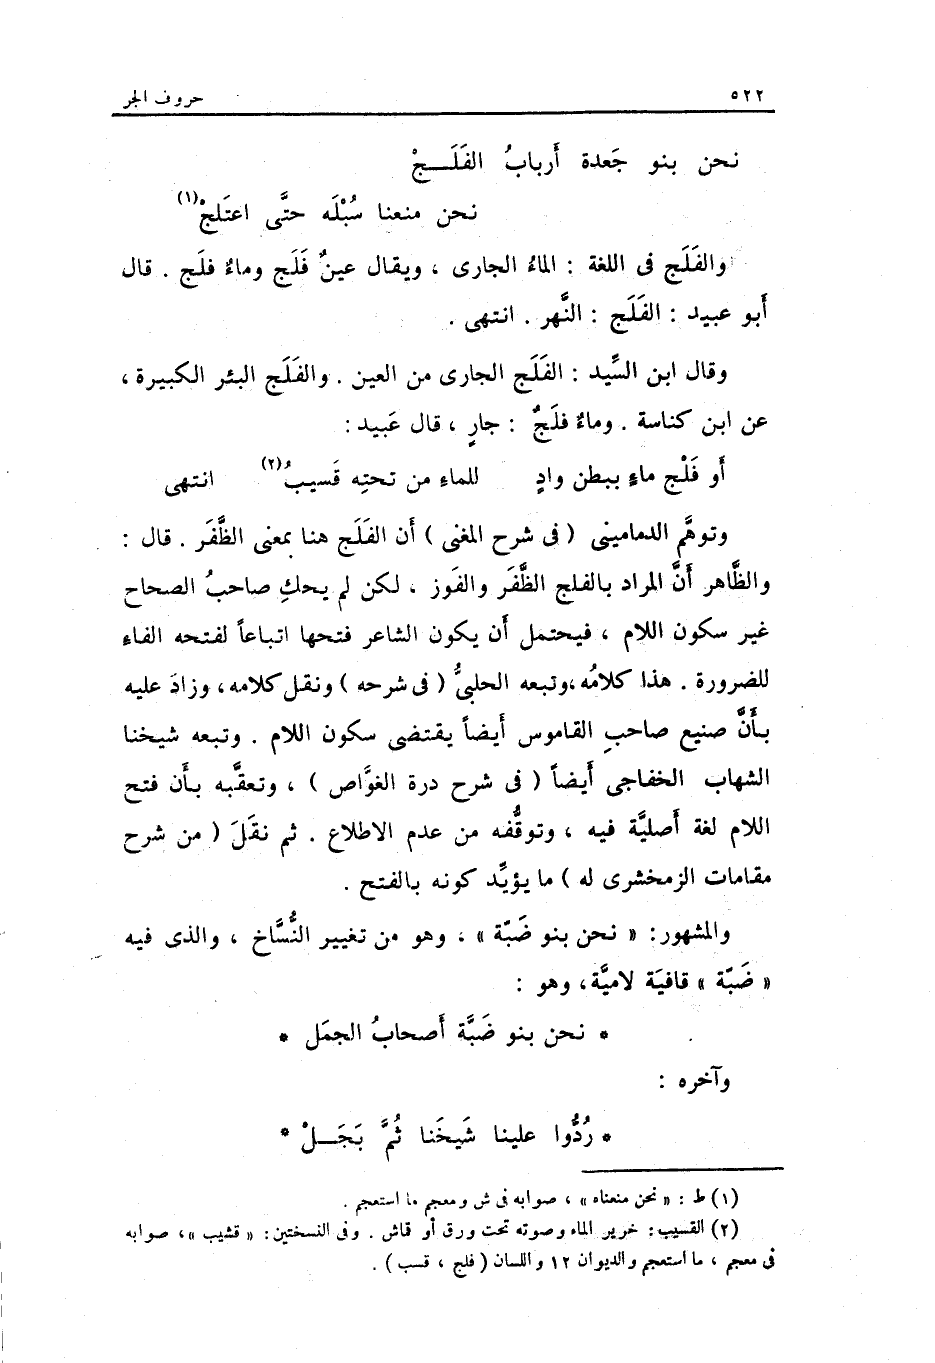 ٥٢٢ حروف الجر
نحن بنو جَعدة أَربابُ الفَلَـــجْ
نحن منعنا سُبْلَه حتَّى اعتَلجْ(١)
والفَلَج فى اللغة : الماءُ الجارى ، ويقال عينٌ فَلَج وماءٌ فلَج . قال
أَبو عبيد : الفَلَج : النَّهر . انتهى .
وقال ابن السِّيد : الفَلَج الجارى من العين . والفَلَج البئر الكبيرة ،
عن ابن كناسة . وماءٌ فلَجٌ : جارٍ ، قال عَبيد :
أَو فَلْج ماءٍ ببطن وادٍ للماءِ من تحتِه قَسيبُ(٢) انتهى
وتوهَّم الدمامينى ( فى شرح المغنى ) أَن الفَلَج هنا بمعنى الظَّفَر . قال :
والظَّاهر أَنَّ المراد بالفلج الظَّفَر والفَوز ، لكن لم يحكِ صاحبُ الصحاح
غير سكون اللام ، فيحتمل أَن يكون الشاعر فتحها اتباعاً لفتحه الفاء
للضرورة . هذا كلامُه ،وتبعه الحلبىُّ ( فى شرحه ) ونقل كلامه، وزادَ عليه
بأَنَّ صنيع صاحبِ القاموس أَيضاً يقتضى سكون اللام . وتبعه شيخنا
الشهاب الخفاجى أَيضاً ( فى شرح درة الغوَّاص ) ، وتعقَّبه بأَن فتح
اللام لغة أَصليَّة فيه ، وتوقُّفه من عدم الاطلاع . ثم نقَلَ ( من شرح
مقامات الزمخشرى له ) ما يؤيِّد كونه بالفتح .
والمشهور: « نحن بنو ضَبّة » ، وهو من تغيير النُّسَّاخ ، والذى فيه
« ضَبّة » قافيَة لاميَّة، وهو :
* نحن بنو ضَبَّة أَصحابُ الجمَل *
وآخره :
* رُدُّوا علينا شَيخَنا ثُمَّ بَجَـــلْ *
(١) ط : « نحن منعناه » ، صوابه فى ش ومعجم ما استعجم .
(٢) القسيب: خرير الماء وصوته تحت ورق أو قاش . وفى النسختين: « قشيب »، صوابه
فى معجم ، ما استعجم والديوان ١٢ واللسان ( فلج ، قسب ) .